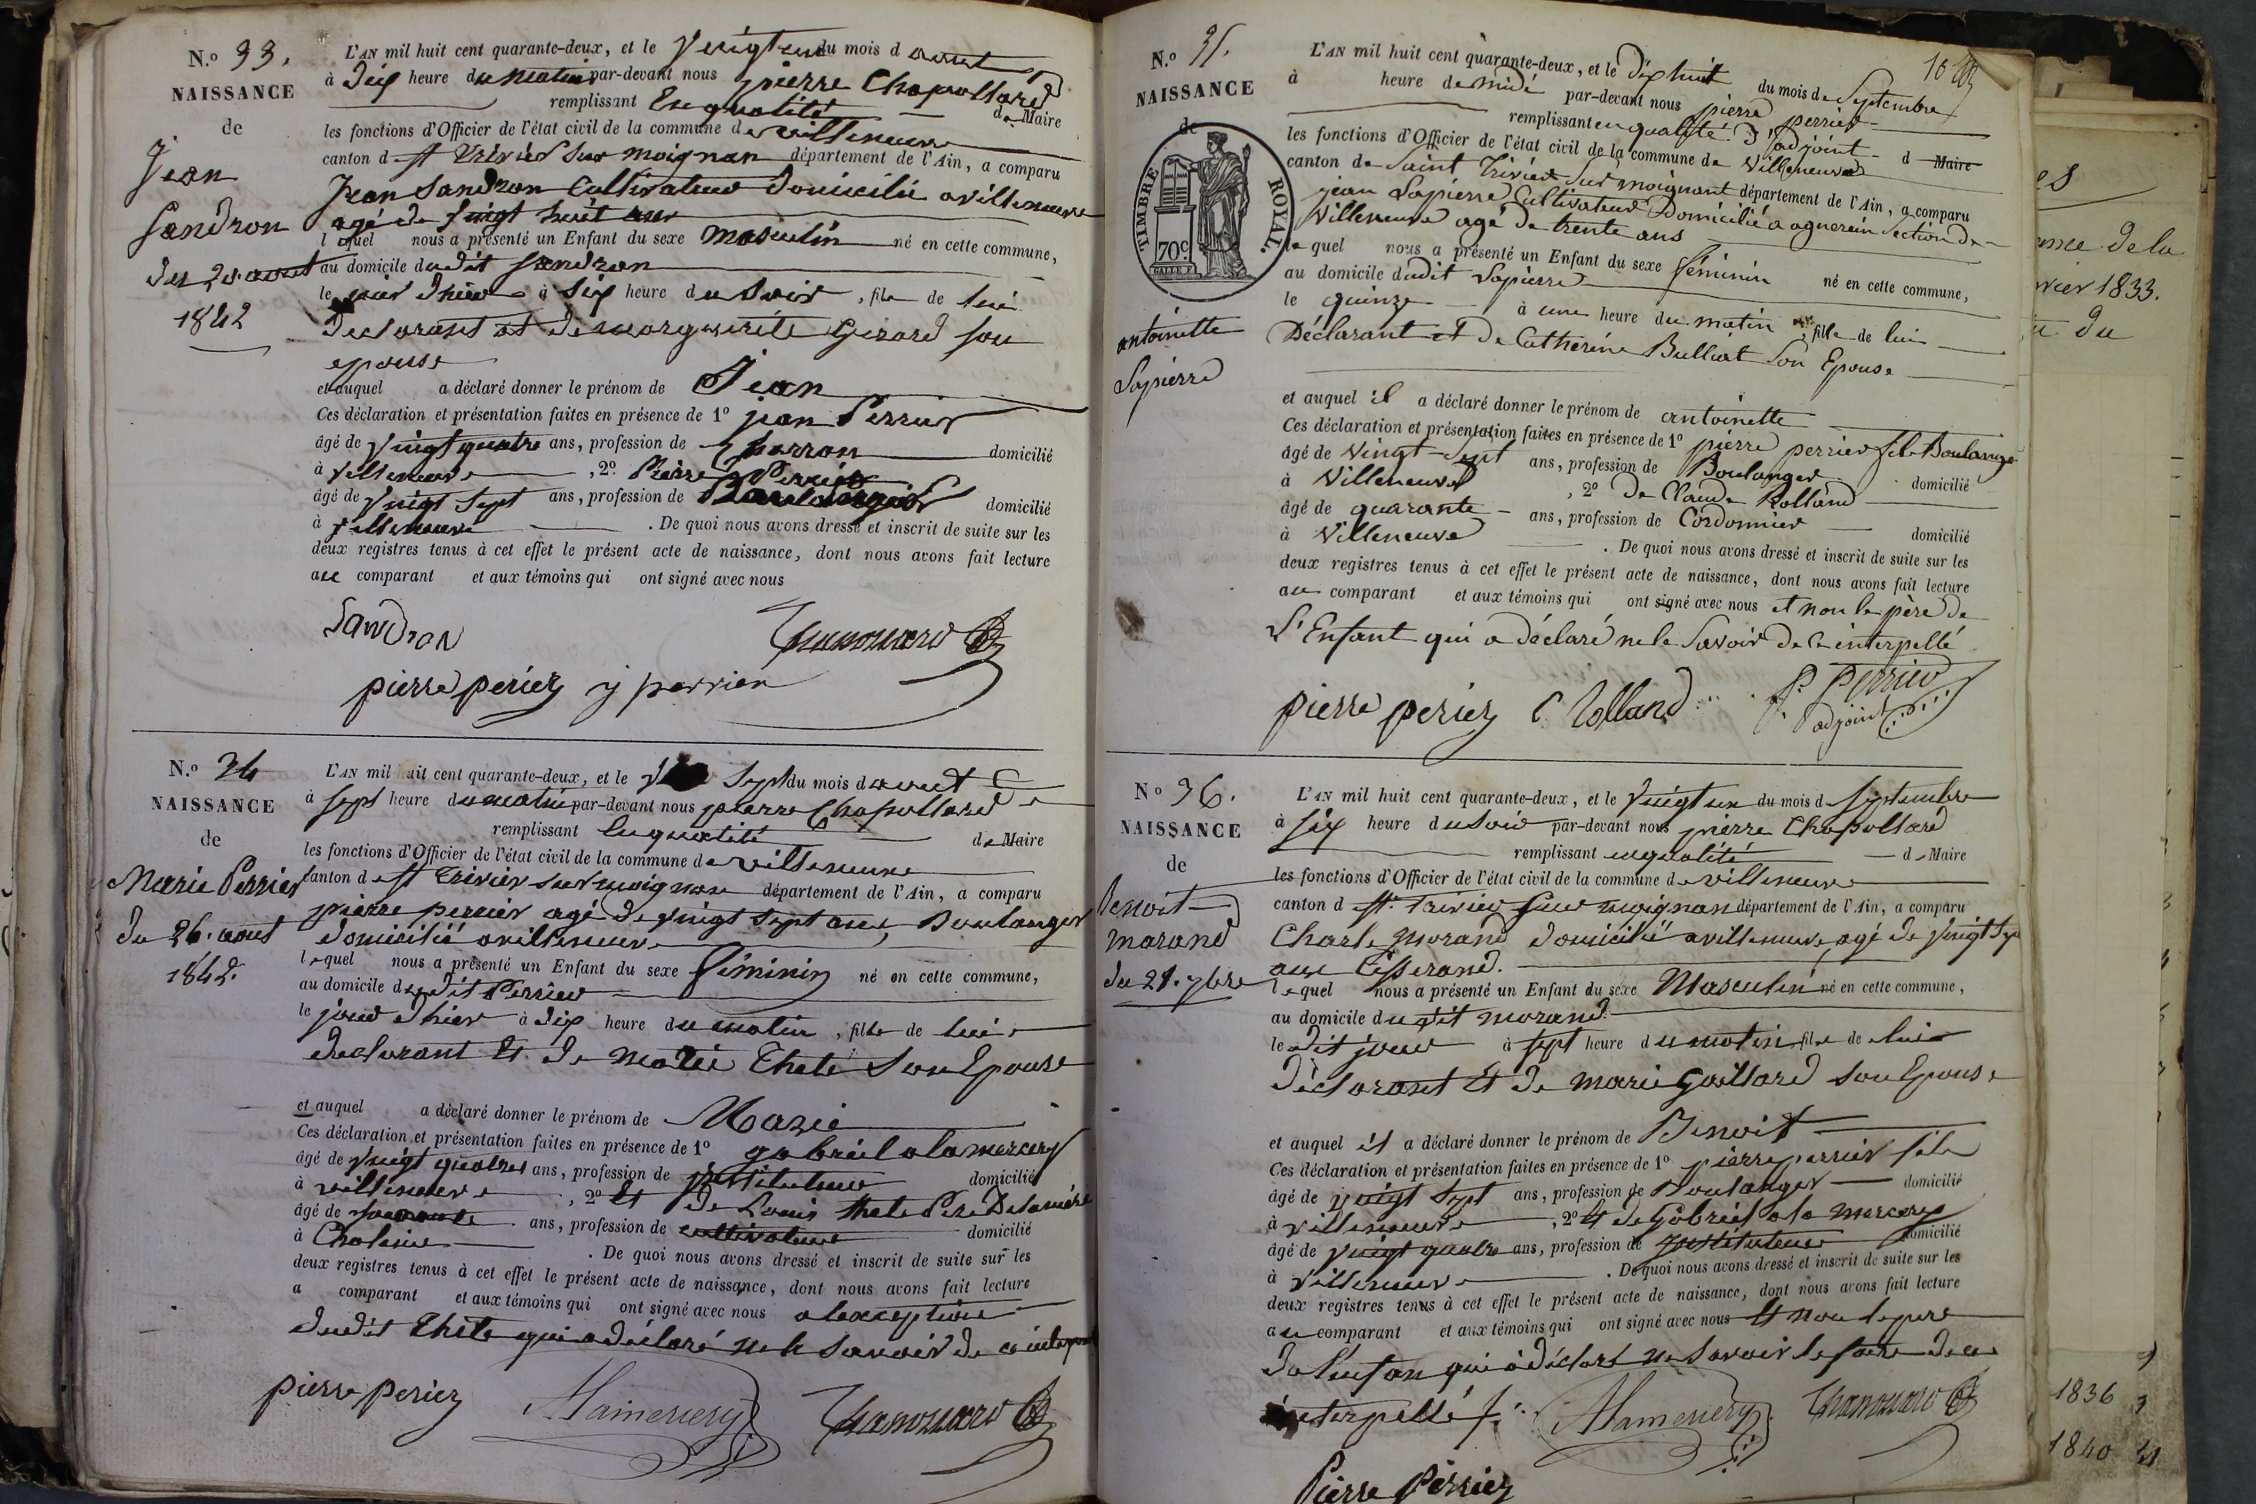 N.o 33.
NAISSANCE
de
Jean
Sandron
du 20. aout
1842
L'AN mil huit cent quarante-deux, et le vingt un du mois d aout
à dix heure du matin par-devant nous pierre Chapollard
remplissant En qualité de Maire
les fonctions d'Officier de l'état civil de la commune de villeneuve
canton d St trivier sur moignan département de l'Ain, a comparu
Jean Sandron Cultivateur domicilié a villeneuve
agé de vingt huit ans
lequel nous a présenté un Enfant du sexe masculin né en cette commune,
au domicile dudit Sandron
le jour d'hier à six heure du Soir, fils de lui
declarant et de marguerite Girard son
epouse
et auquel a déclaré donner le prénom de Jean
Ces déclaration et présentation faites en présence de 1o jean Perrier
âgé de vingt quatre ans, profession de charron domicilié
à villeneuve, 2o. Pierre Perrier
âgé de vingt sept ans, profession de Boulanger domicilié
à villeneuve. De quoi nous avons dressé et inscrit de suite sur les
deux registres tenus à cet effet le présent acte de naissance, dont nous avons fait lecture
au comparant et aux témoins qui ont signé avec nous
Sandron
pierre perier j perrier
N.o 34
NAISSANCE
de
Marie Perrier
du 26. aout
1842.
L'AN mil huit cent quarante-deux, et le sept du mois d aout
à sept heure du matin par-devant nous pierre Chapollard
remplissant En qualité de Maire
les fonctions d'Officier de l'état civil de la commune de villeneuve
canton d St trivier sur moignan département de l'Ain, a comparu
pierre perrier agé de vingt sept ans, Boulanger
domicilié a villeneuve
lequel nous a présenté un Enfant du sexe féminin né en cette commune,
au domicile dudit Perrier
le jour d'hier à dix heure du matin, fille de lui
declarant Et de marie Thete Son Epouse
et auquel a déclaré donner le prénom de Marie
Ces déclaration et présentation faites en présence de 1o gabriel alamercery
âgé de vingt quatres ans, profession de jnstituteur domicilié
à villeneuve, 2o Et de Louis thete Pere De la mère
âgé de ans, profession de cultivateur domicilié
à Chaleins. De quoi nous avons dressé et inscrit de suite sur les
deux registres tenus à cet effet le présent acte de naissance, dont nous avons fait lecture
a comparant et aux témoins qui ont signé avec nous a lexception
dudit thete qui a déclaré ne le savoir de ce
pierre perier Alamercery
N.o 35.
NAISSANCE
de
TIMBRE ROYAL.
70c.
antoinette
Lapierre
10
L'AN mil huit cent quarante-deux, et le dix huit du mois de Septembre
à heure de midi par-devant nous pierre perrier
remplissant en qualité d'adjoint d Maire
les fonctions d'Officier de l'état civil de la commune de villeneuve
canton de Saint Trivier Sur moignant département de l'Ain, a comparu
jean Lapierre Cultivateur Domicilié a agnerein Section de
Villeneuve agé de trente ans
lequel nous a présenté un Enfant du sexe féminin né en cette commune,
au domicile dudit Lapierre
le quinze à une heure du matin, fille de lui
Déclarant et de Catherine Bulliat Son Epouse
et auquel il a déclaré donner le prénom de antoinette
Ces déclaration et présentation faites en présence de 1o pierre perrier fils Boulanger
âgé de vingt-Sept ans, profession de Boulanger domicilié
à Villeneuve, 2o de Claude Rolland
âgé de quarante ans, profession de Cordonnier domicilié
à Villeneuve. De quoi nous avons dressé et inscrit de suite sur les
deux registres tenus à cet effet le présent acte de naissance, dont nous avons fait lecture
au comparant et aux témoins qui ont signé avec nous et non le père de
L'Enfant qui a déclaré ne le Savoir de ce interpellé
pierre perier C Rolland P. Perrier
adjoint
No 36.
NAISSANCE
de
Benoit
morand
du 21. 7bre
L'AN mil huit cent quarante-deux, et le vingt un du mois d Septembre
à six heure du soir par-devant nous pierre Chapollard
remplissant enqualité de Maire
les fonctions d'Officier de l'état civil de la commune de villeneuve
canton d St. Trivier sur moignan département de l'Ain, a comparu
Charle morand domicilié a villeneuve, agé de vingt
ans tisserand.
lequel nous a présenté un Enfant du sexe Masculin né en cette commune,
au domicile dudit morand
le dit jour à sept heure du matin, fils de lui
déclarant Et de marie gaillard son Epouse
et auquel il a déclaré donner le prénom de Benoit
Ces déclaration et présentation faites en présence de 1o pierre perrier fils
âgé de vingt Sept ans, profession de Boulanger domicilié
à villeneuve, 2o Et de Gabriel ala mercery
âgé de vingt quatre ans, profession de jnstituteur domicilié
à villeneuve. De quoi nous avons dressé et inscrit de suite sur les
deux registres tenus à cet effet le présent acte de naissance, dont nous avons fait lecture
au comparant et aux témoins qui ont signé avec nous Et non le pere
de lenfan qui a déclaré ne savoir le faire de ce
interpellé
Alamercery
Pierre Perrier
de la
1833.
du
1836
1840